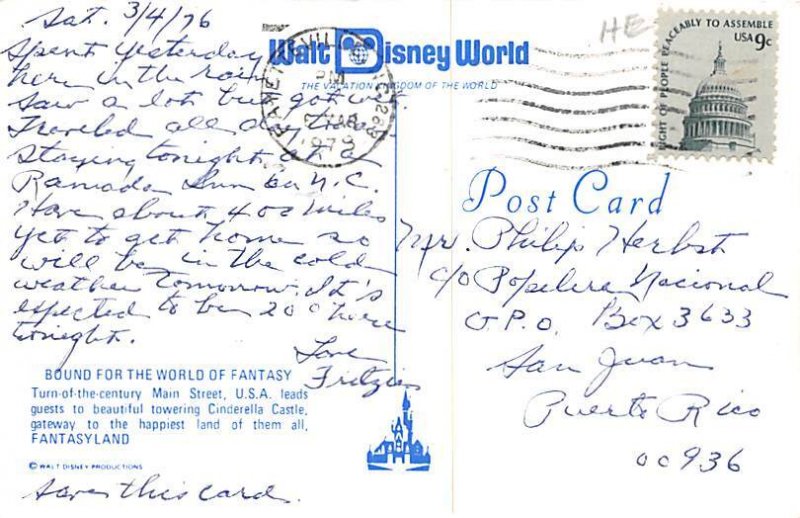 Sat. 3/4/76
Spent yesterday
here in the rain
saw a lot but got wet.
Traveled all day
staying tonight at a
Ramada Inn in N.C.
Have about 400 miles
yet to get home so
will be in the cold
weather tomorrow. It's
expected to be 20° here
tonight.
Love
Fritzie
BOUND FOR THE WORLD OF FANTASY
Turn-of-the-century Main Street, U.S.A. leads
guests to beautiful towering Cinderella Castle,
gateway to the happiest land of them all,
FANTASYLAND
© WALT DISNEY PRODUCTIONS
Saves this card.
Walt Disney World
THE VACATION KINGDOM OF THE WORLD
PM
MAR
HE
RIGHT OF PEOPLE PEACEABLY TO ASSEMBLE
USA 9c
Post Card
Mr. Philip Herbst
c/o Papelera Nacional
G.P.O. Box 3633
San Juan
Puerto Rico
00936